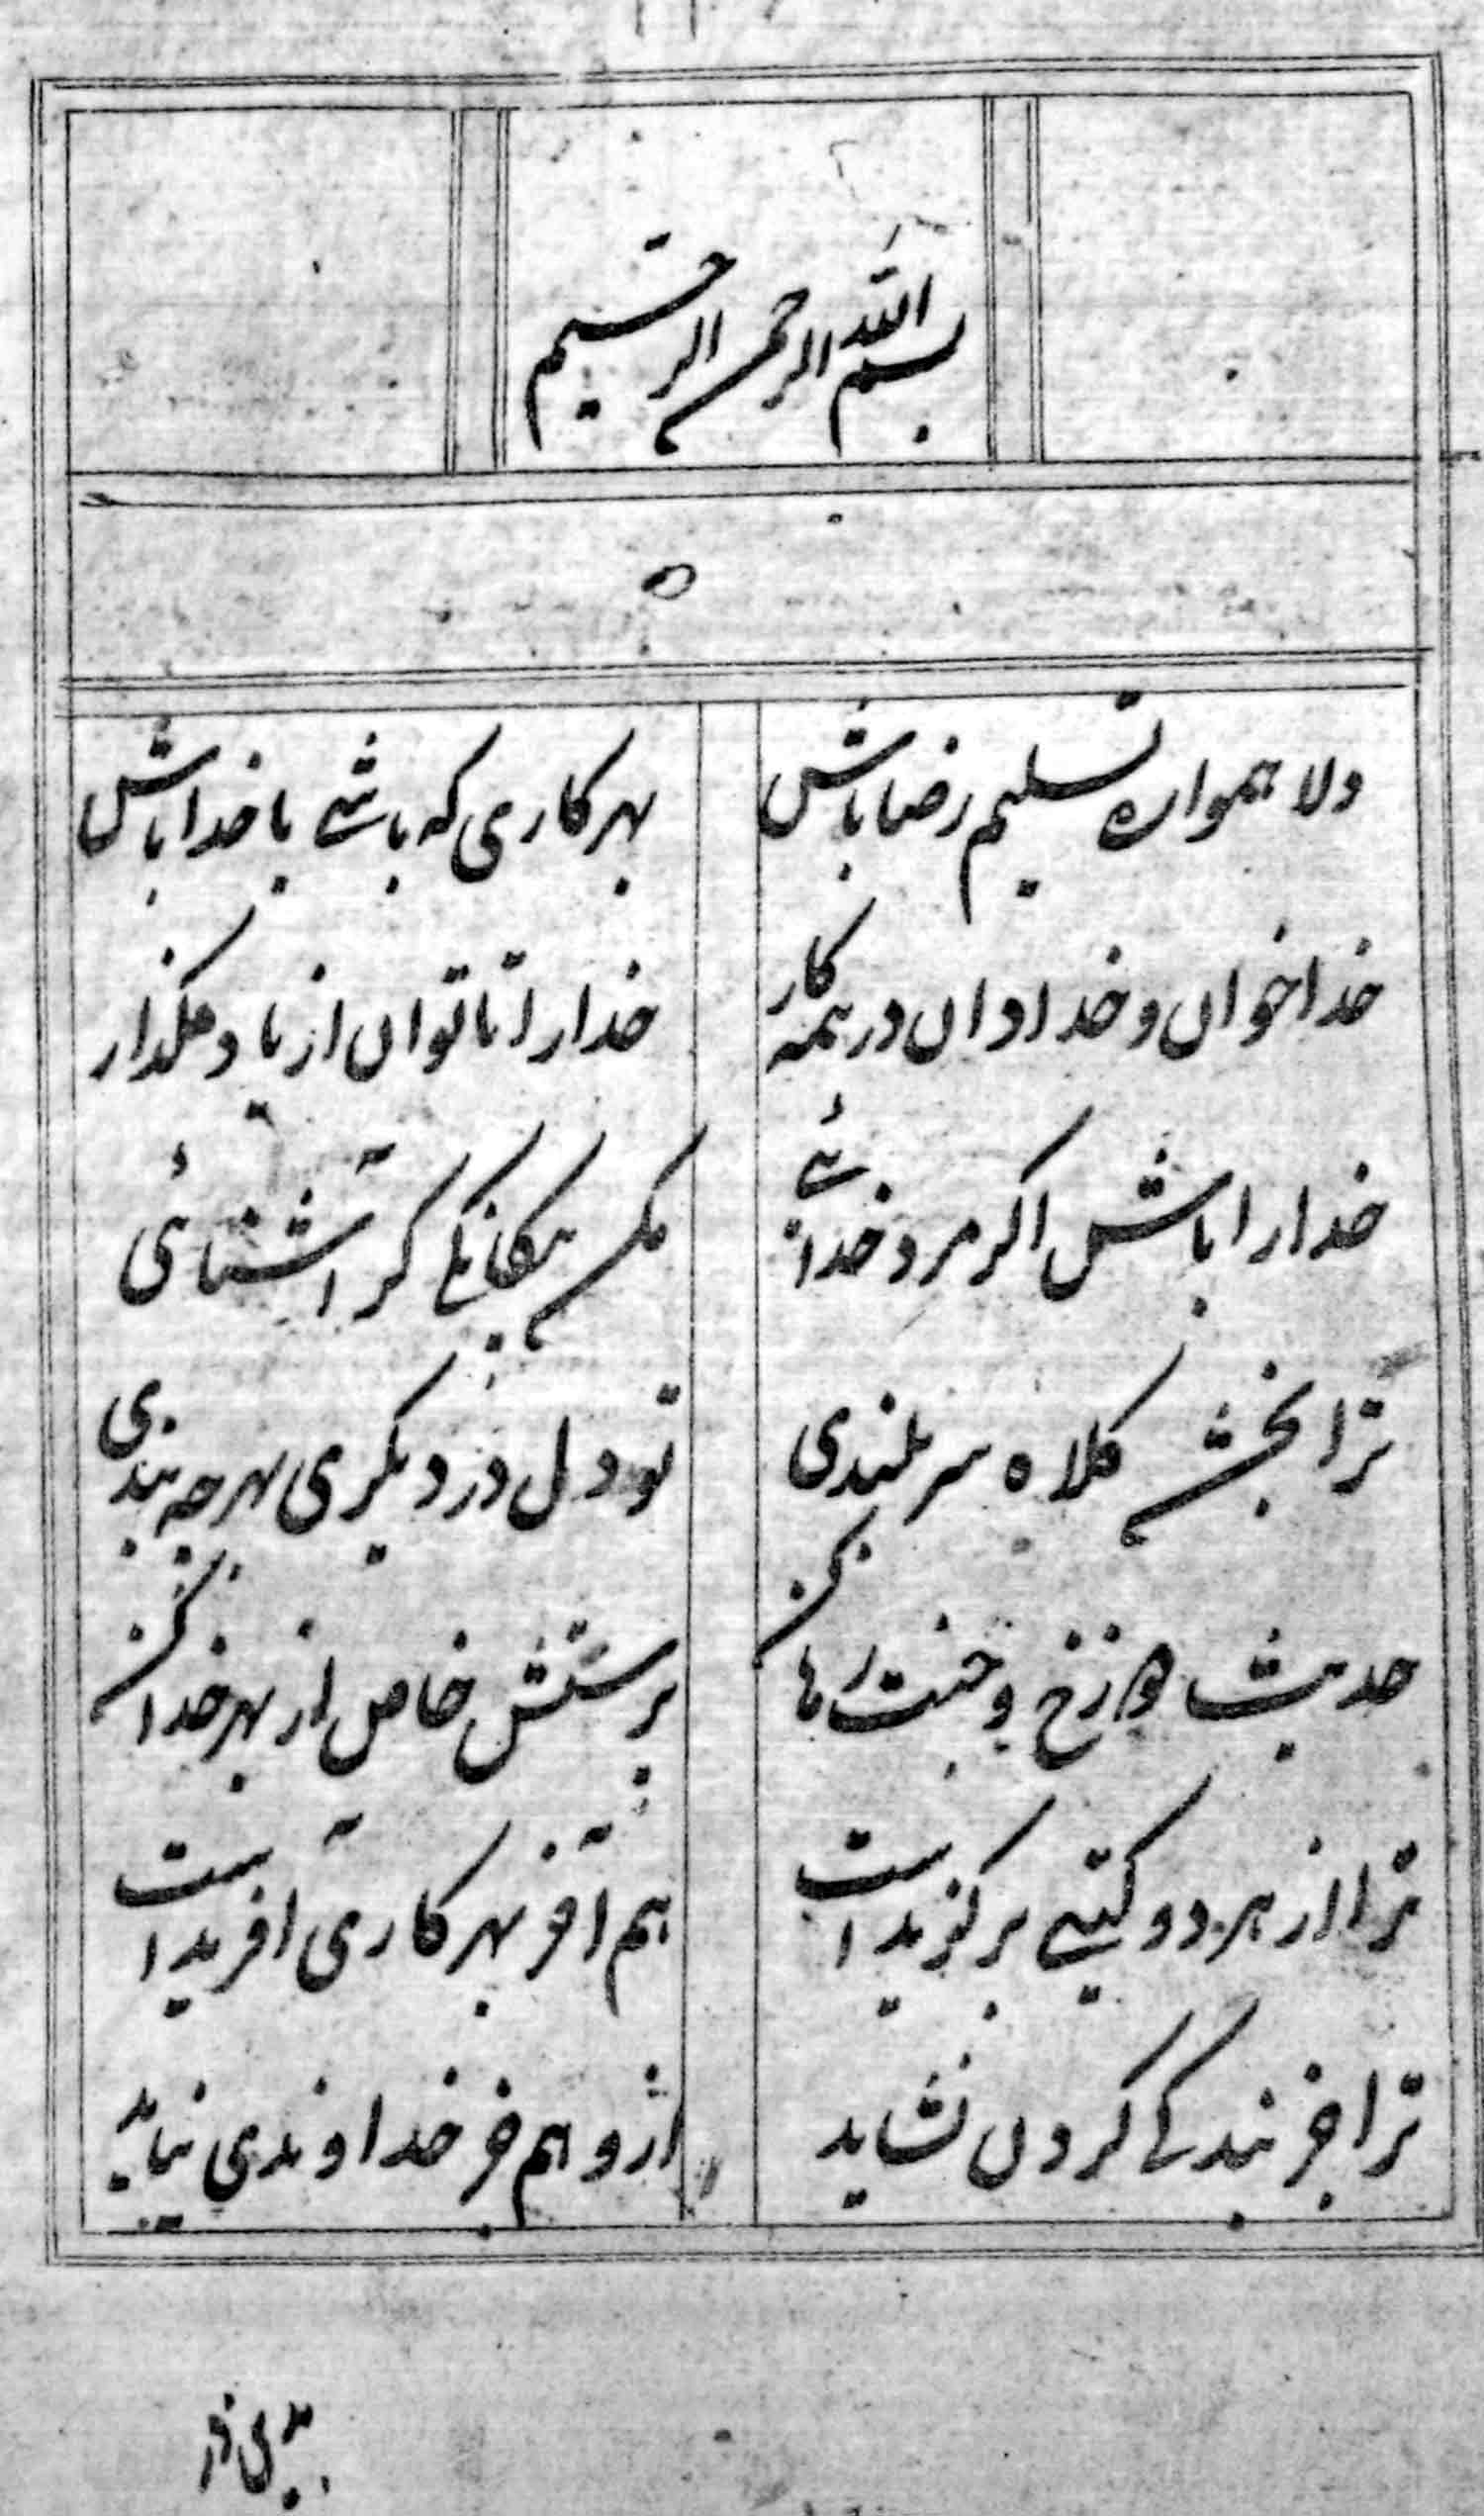 بسم الله الرحمن الرحیم
دلا همواره تسلیم رضا باش بهر کاری که باشی با خدا باش
خدا خوان و خدا دان در همه کار خدا را تا توان از یاد مگذار
خدا را باش اگر مرد خدائی مکن بیگانگی گر آشنائی
ترا بخشد کلاه سربلندی تو دل در دیگری بهر چه بندی
حدیث دوزخ و جنت رها کن پرستش خاص از بهر خدا کن
ترا از هر دو گیتی برگزید است هم آخر بهر کاری آفرید است
ترا جز بندگی کردن نشاید ازو هم جز خداوندی نیاید